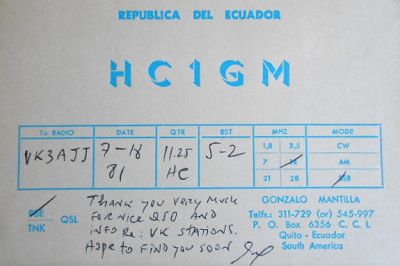 REPUBLICA DEL ECUADOR
HC1GM
To RADIO DATE QTR RST MHZ MODE
VK3AJJ 7-18 81 11.25 HC 5-2
1,8 3,5 CW
7 14 AM
21 28 SSB
PSE QSL TNK
THANK YOU VERY MUCH
FOR NICE QSO AND
INFO RE: VK STATIONS.
HOPE TO FIND YOU SOON
GONZALO MANTILLA
Telfs.: 311-729 (or) 545-997
P.O. Box 6356 C. C. I.
Quito - Ecuador
South America